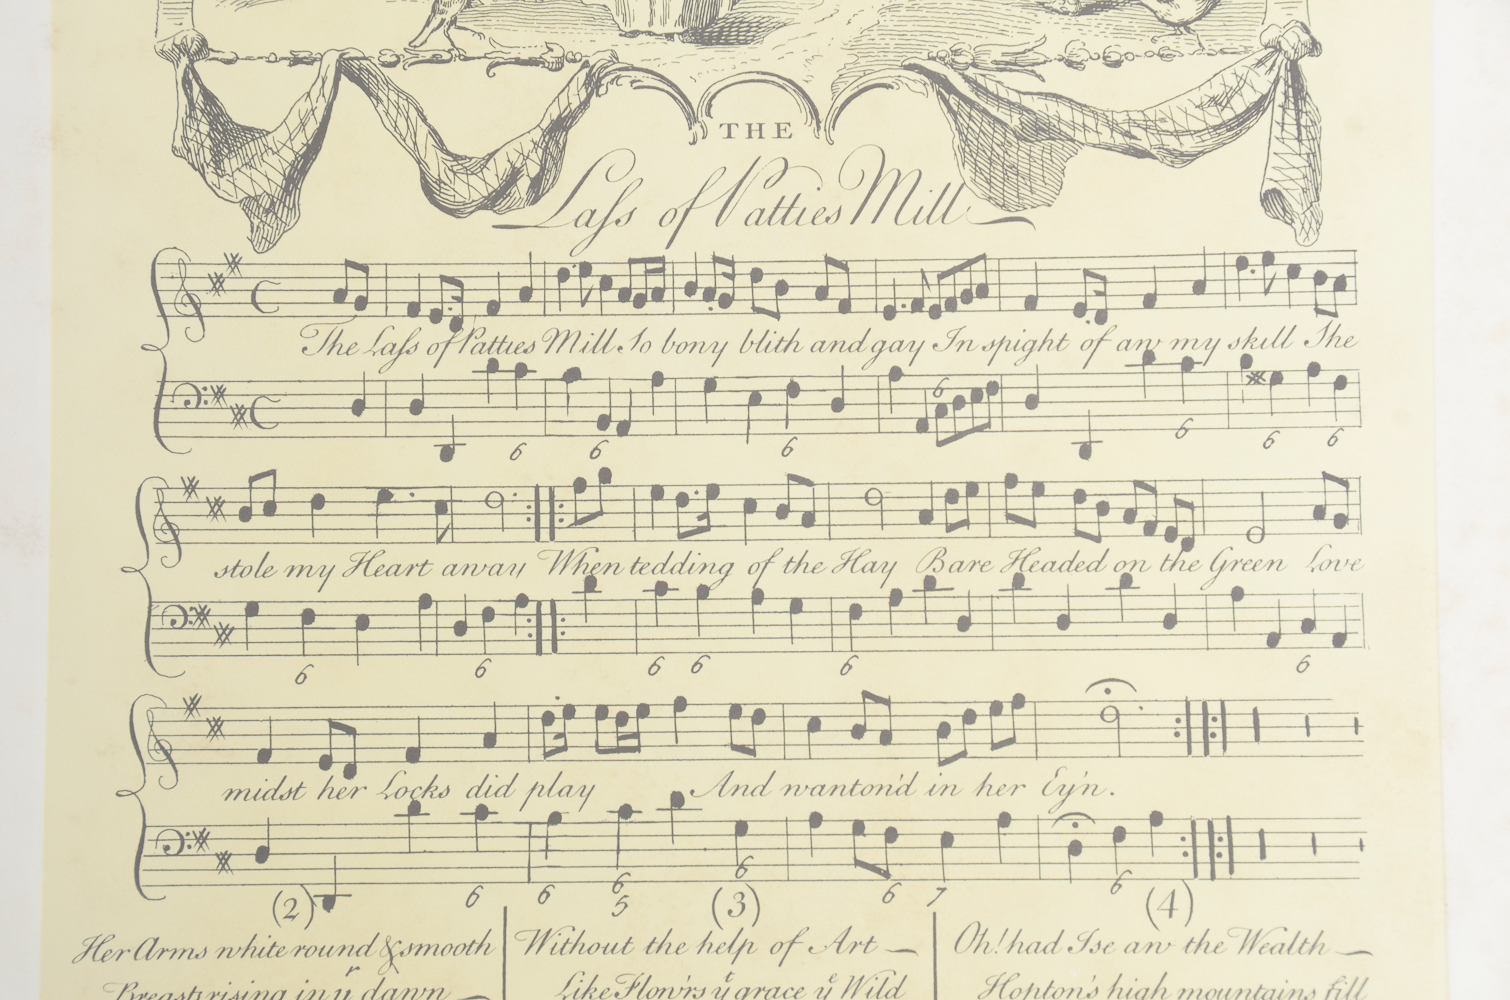 THE
Laſs of Patties Mill
The Laſs of Patties Mill So bony blith and gay In spight of aw my skill The
6 6 6 6 6 6 6
stole my Heart away When tedding of the Hay Bare Headed on the Green Love
6 6 6 6 6 6
midst her Locks did play And wanton'd in her Ey'n.
6 6 6 5 6 6 7 6
(2) (3) (4)
Her Arms white round & smooth
Breasts rising in yr dawn
Without the help of Art
Like Flow'rs yt grace ye Wild
Oh! had I se aw the Wealth
Hopton's high mountains fill